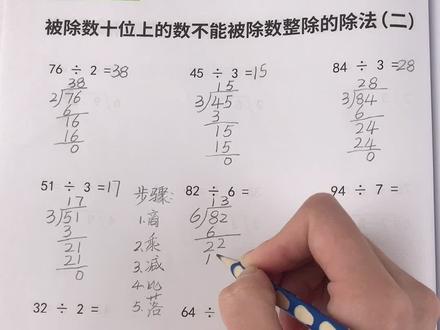 被除数十位上的数不能被除数整除的除法（二）
76 ÷ 2 =38
38
2)76
6
16
16
0
45 ÷ 3 =15
15
3)45
3
15
15
0
84 ÷ 3 =28
28
3)84
6
24
24
0
51 ÷ 3 =17
17
3)51
3
21
21
0
步骤:
1.商
2.乘
3.减
4.比
5.落
82 ÷ 6 =
13
6)82
6
22
1
94 ÷ 7 =
32 ÷ 2 =
64 ÷